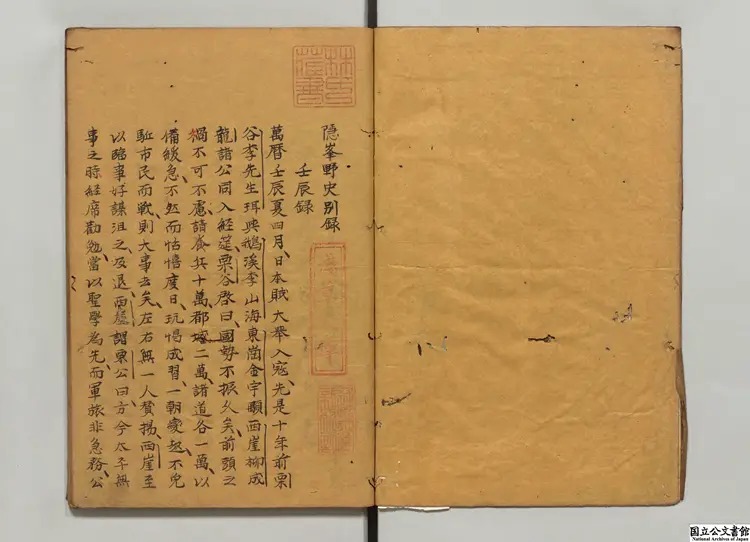 隐峯野史别録
壬辰録
萬曆壬辰夏四月日本賊大舉入寇先是十年前栗
谷李先生珥與鵝溪李山海東崗金宇顒西崖柳成
龍諸公同入經筵栗谷啓曰國勢不振久矣前頭之
禍不可不慮請養兵十萬都城二萬諸道各一萬以
備緩急不然而怙憘度日玩愒成習一朝變起不免
駈市民而戰則大事去矣左右無一人贊揚西崖至
以臨事好謀沮之及退西崖謂栗公曰方今太平無
事之時経席勸勉當以聖學為先而軍旅非急務公
林氏
藏書
国立公文書館
National Archives of Japan